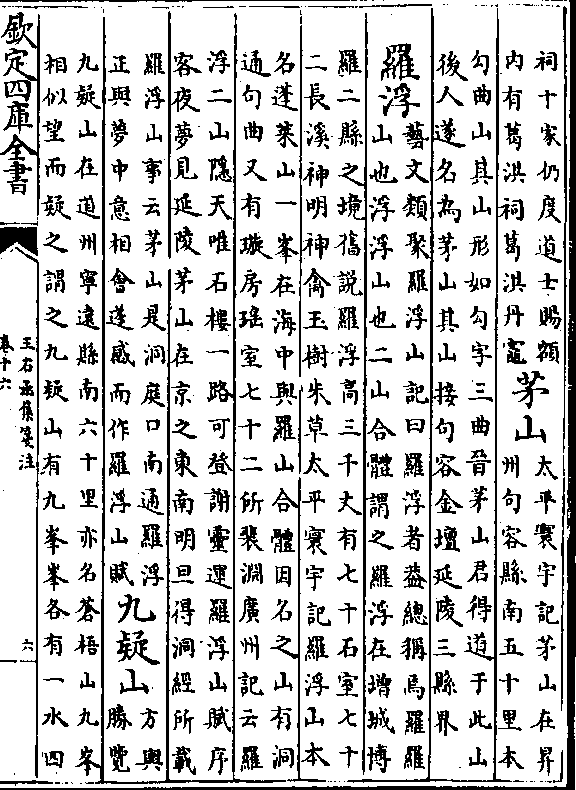 祠十家仍度道士賜額
内有葛洪祠葛洪丹竈
茅山
太平寰宇記茅山在昇
州句容縣南五十里本
勾曲山其山形如勾字三曲晉茅山君得道于此山
後人遂名為茅山其山接句容金壇延陵三縣界
羅浮
藝文類聚羅浮山記曰羅浮者葢總稱焉羅羅
山也浮浮山也二山合體謂之羅浮在增城博
羅二縣之境舊説羅浮高三千丈有七十石室七十
二長溪神明神禽玉樹朱草太平寰宇記羅浮山本
名蓬萊山一峯在海中與羅山合體因名之山有洞
通句曲又有璇房瑤室七十二所裴淵廣州記云羅
浮二山隱天唯石樓一路可登謝靈運羅浮山賦序
客夜夢見延陵茅山在京之東南明旦得洞經所載
羅浮山事云茅山是洞庭口南通羅浮
正與夢中意相會遂感而作羅浮山賦
九疑山
方輿
勝覽
九疑山在道州寧遠縣南六十里亦名蒼梧山九峯
相似望而疑之謂之九疑山有九峯峯各有一水四
欽定四庫全書
王右丞集箋注
卷十六
六